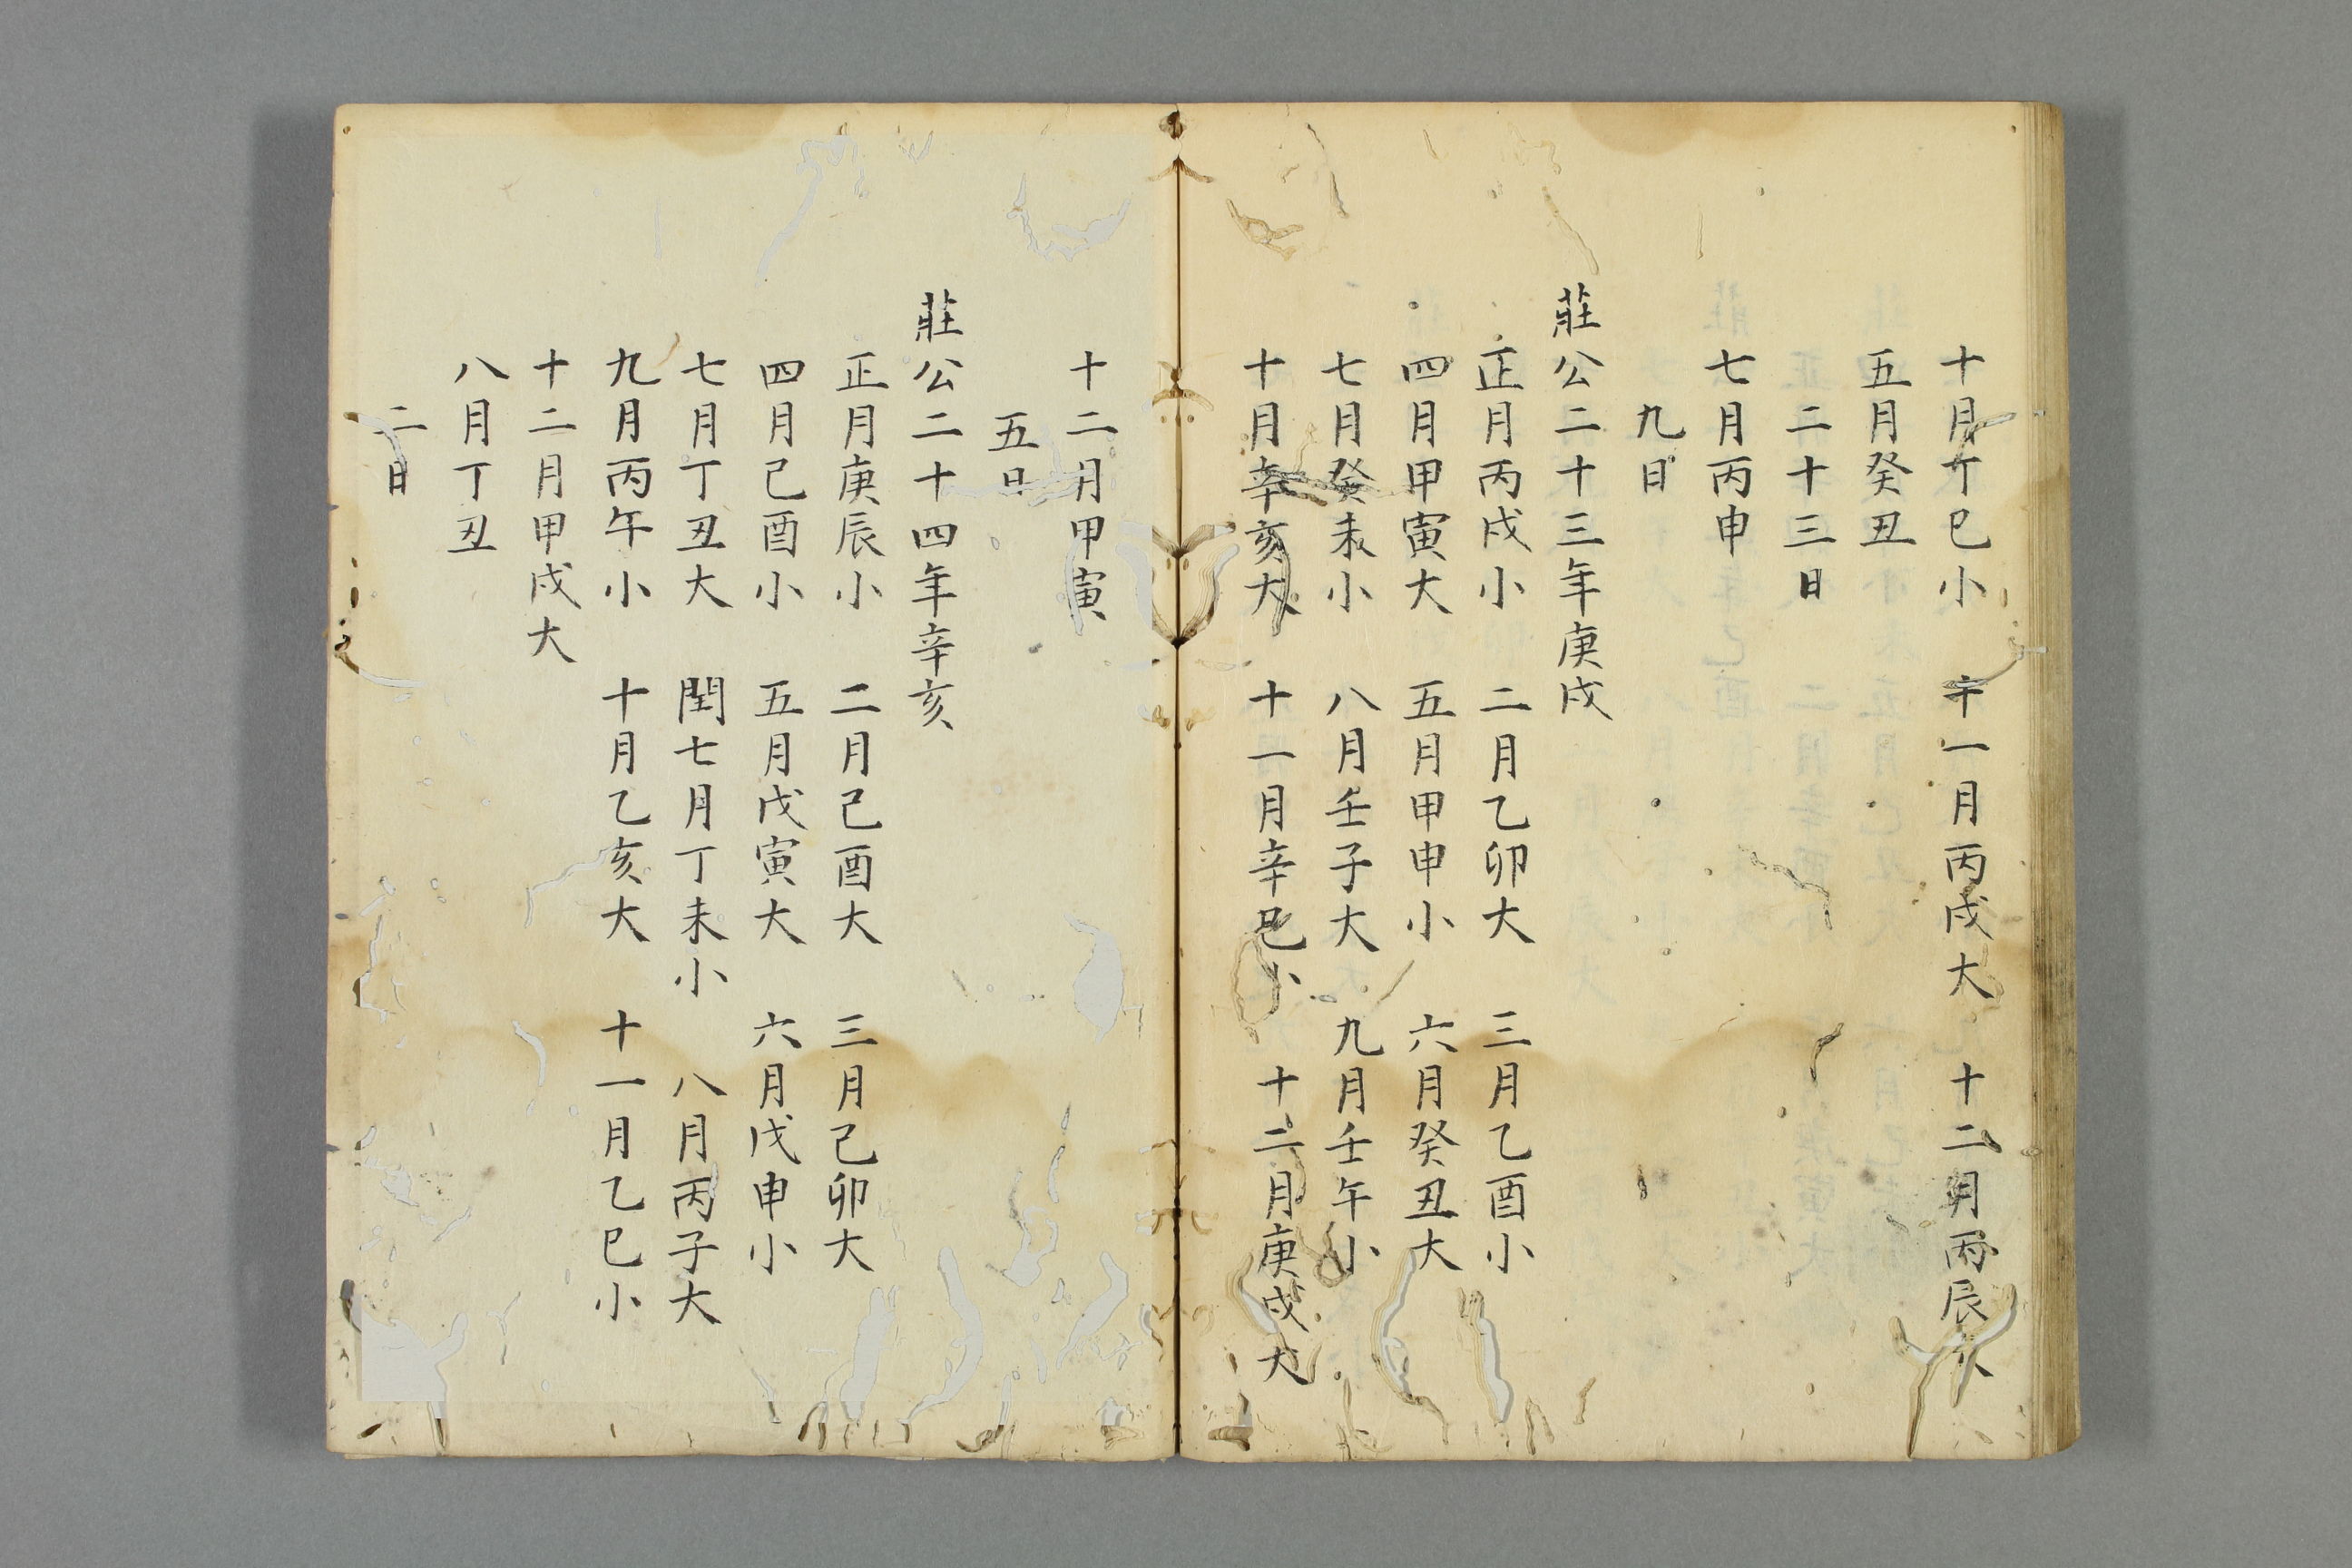 十月丁巳小　十一月丙戌大　十二月丙辰大
五月癸丑
二十三日
七月丙申
九日
莊公二十三年庚戌
正月丙戌小　二月乙卯大　三月乙酉小
四月甲寅大　五月甲申小　六月癸丑大
七月癸未小　八月壬子大　九月壬午小
十月辛亥大　十一月辛巳小　十二月庚戌大
十二月甲寅
五日
莊公二十四年辛亥
正月庚辰小　二月己酉大　三月己卯大
四月己酉小　五月戊寅大　六月戊申小
七月丁丑大　閏七月丁未小　八月丙子大
九月丙午小　十月乙亥大　十一月乙巳小
十二月甲戌大
八月丁丑
二日